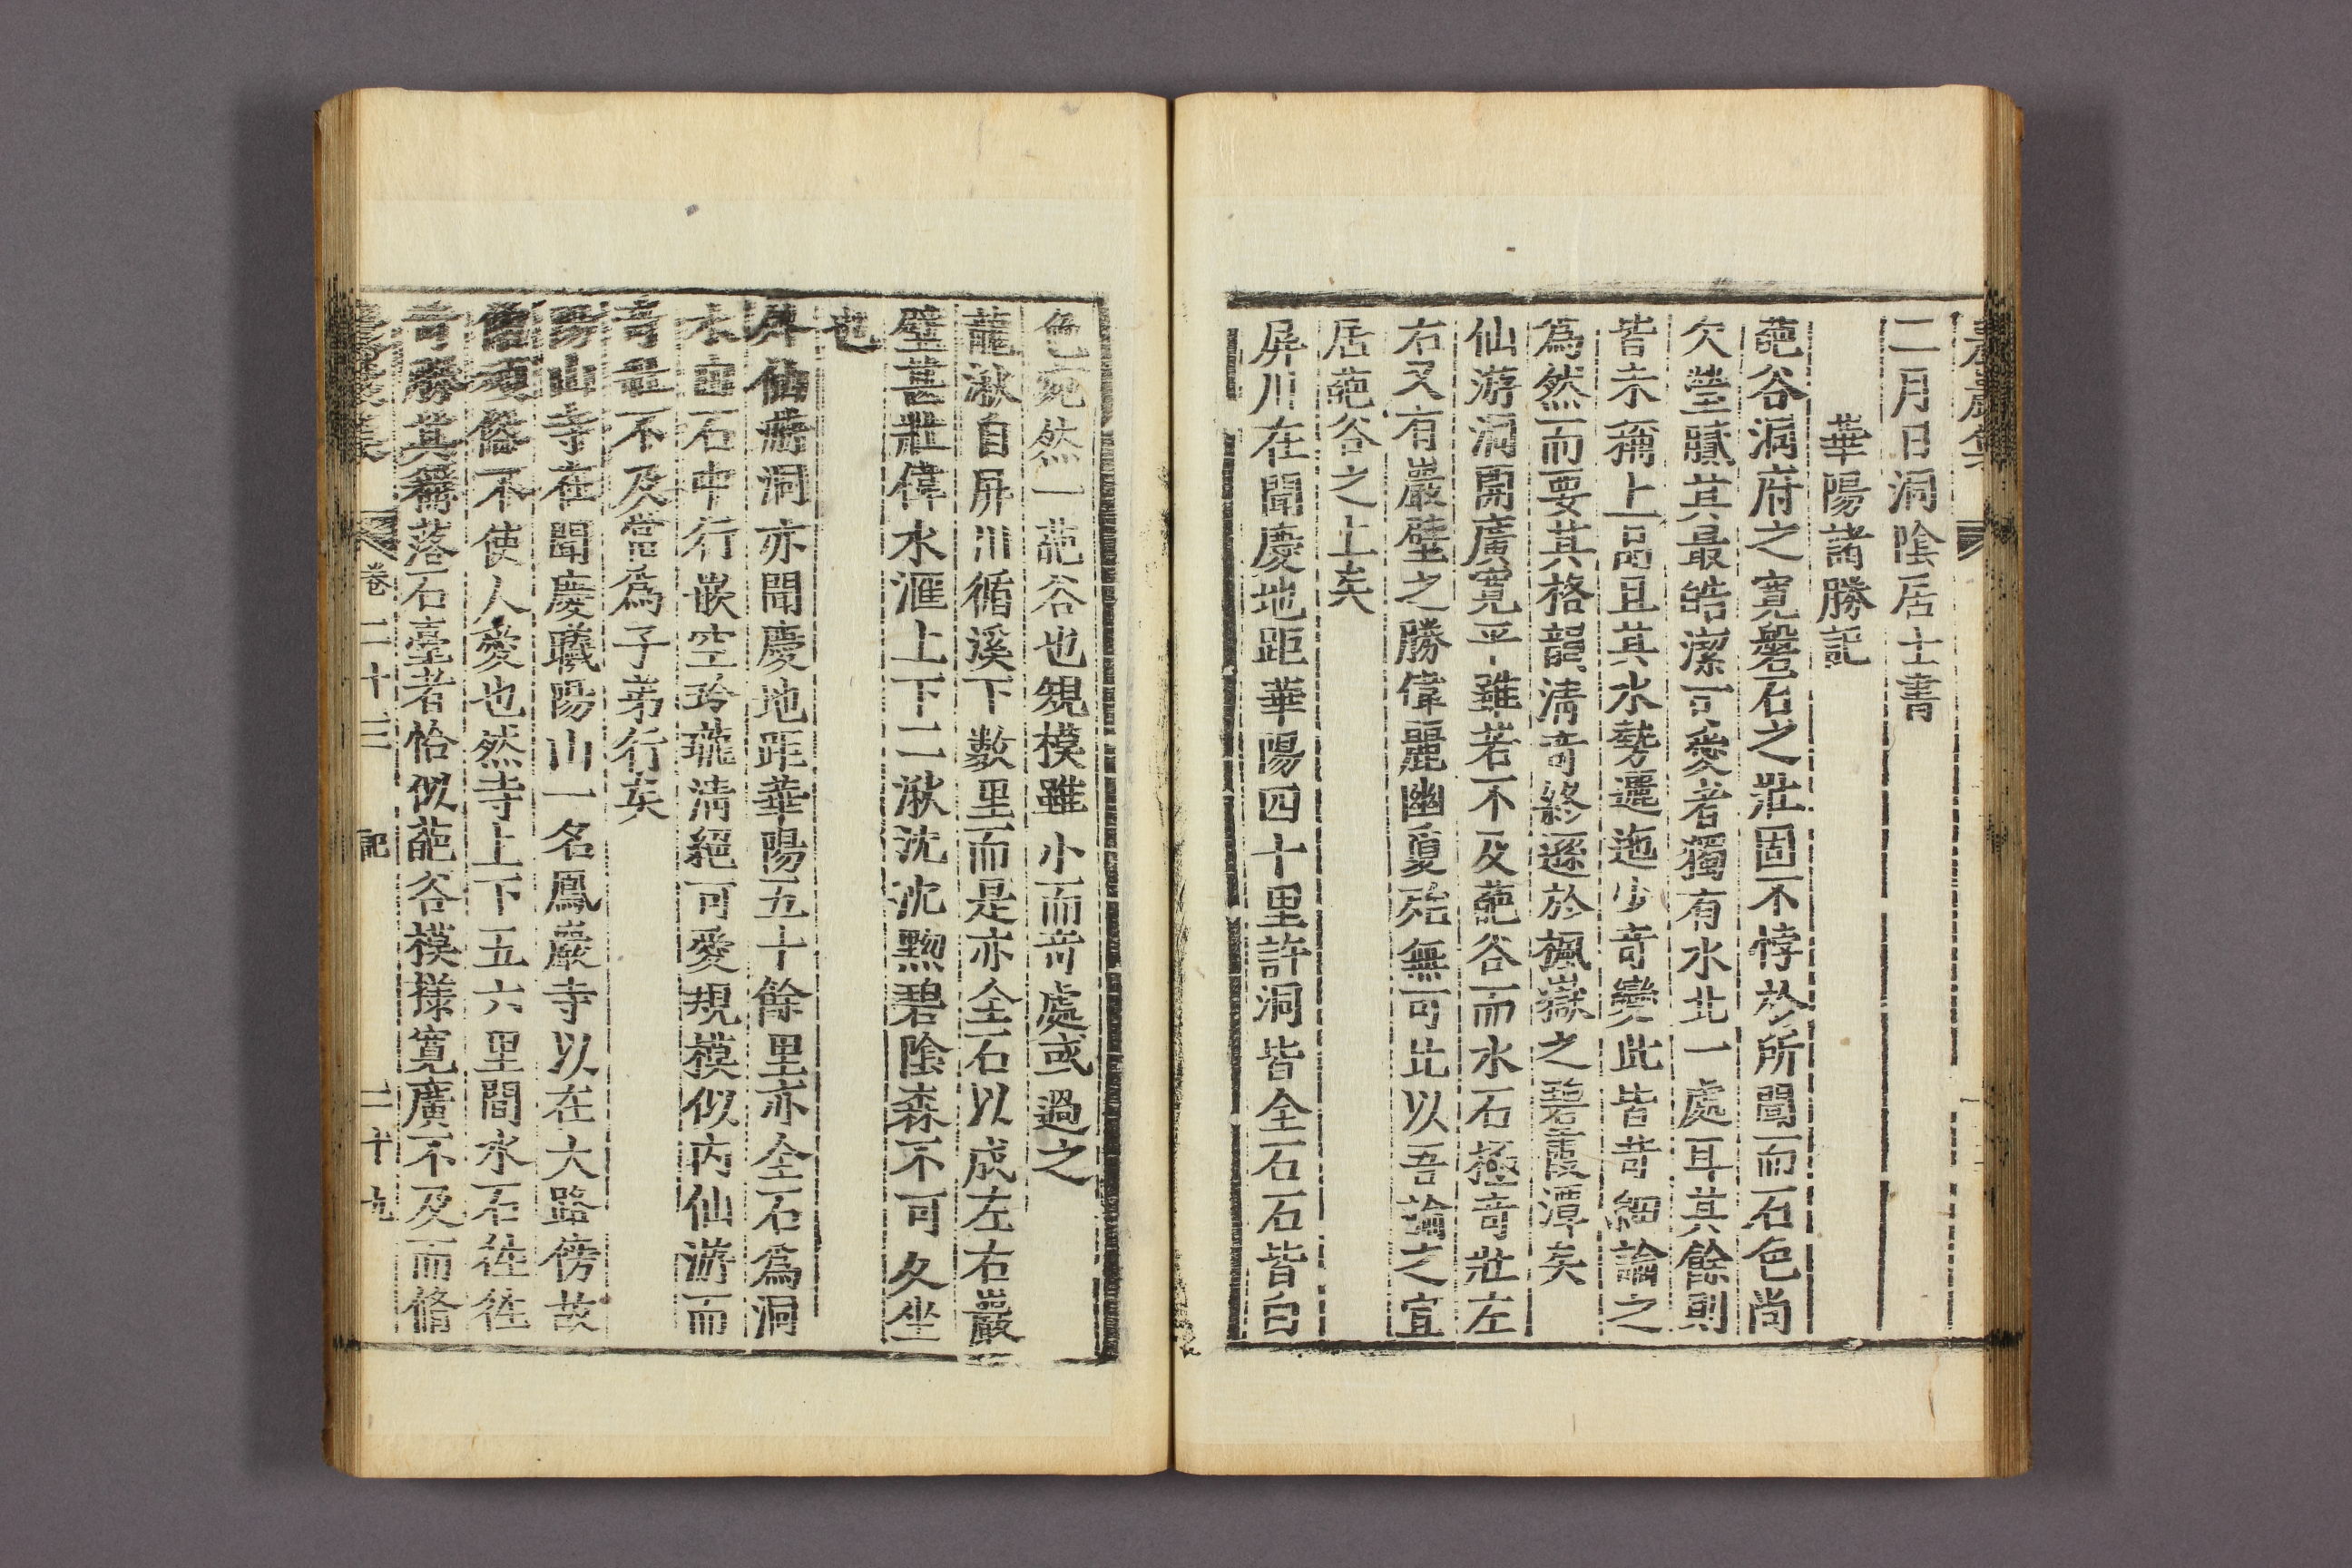 二月日洞陰居士書
華陽諸勝記
葩谷洞府之寬磐石之壯固不悖於所聞而石色尚
欠瑩膩其最皓潔可愛者獨有水北一處耳其餘則
皆未稱上品且其水勢邐迤少奇變此皆苛細論之
爲然而要其格韻清奇終遜於楓嶽之碧霞潭矣
仙游洞開廣寬平雖若不及葩谷而水石極奇壯左
右又有巖壁之勝偉麗幽夐殆無可比以吾論之宜
居葩谷之上矣
屛川在聞慶地距華陽四十里許洞皆全石石皆白
色宛然一葩谷也規模雖小而奇處或過之
龍湫自屛川循溪下數里而是亦全石以成左右巖
壁甚壯偉水滙上下二湫沈沈黝碧陰森不可久坐
也
外仙游洞亦聞慶地距華陽五十餘里亦全石爲洞
水由石中行嵌空玲瓏清絕可愛規模似內仙游而
奇壯不及當爲子弟行矣
陽山寺在聞慶曦陽山一名鳳巖寺以在大路傍故
僧頑俗不使人愛也然寺上下五六里間水石往往
奇勝其稱落石臺者恰似葩谷模㨾寬廣不及而脩
卷二十三 記 二十九